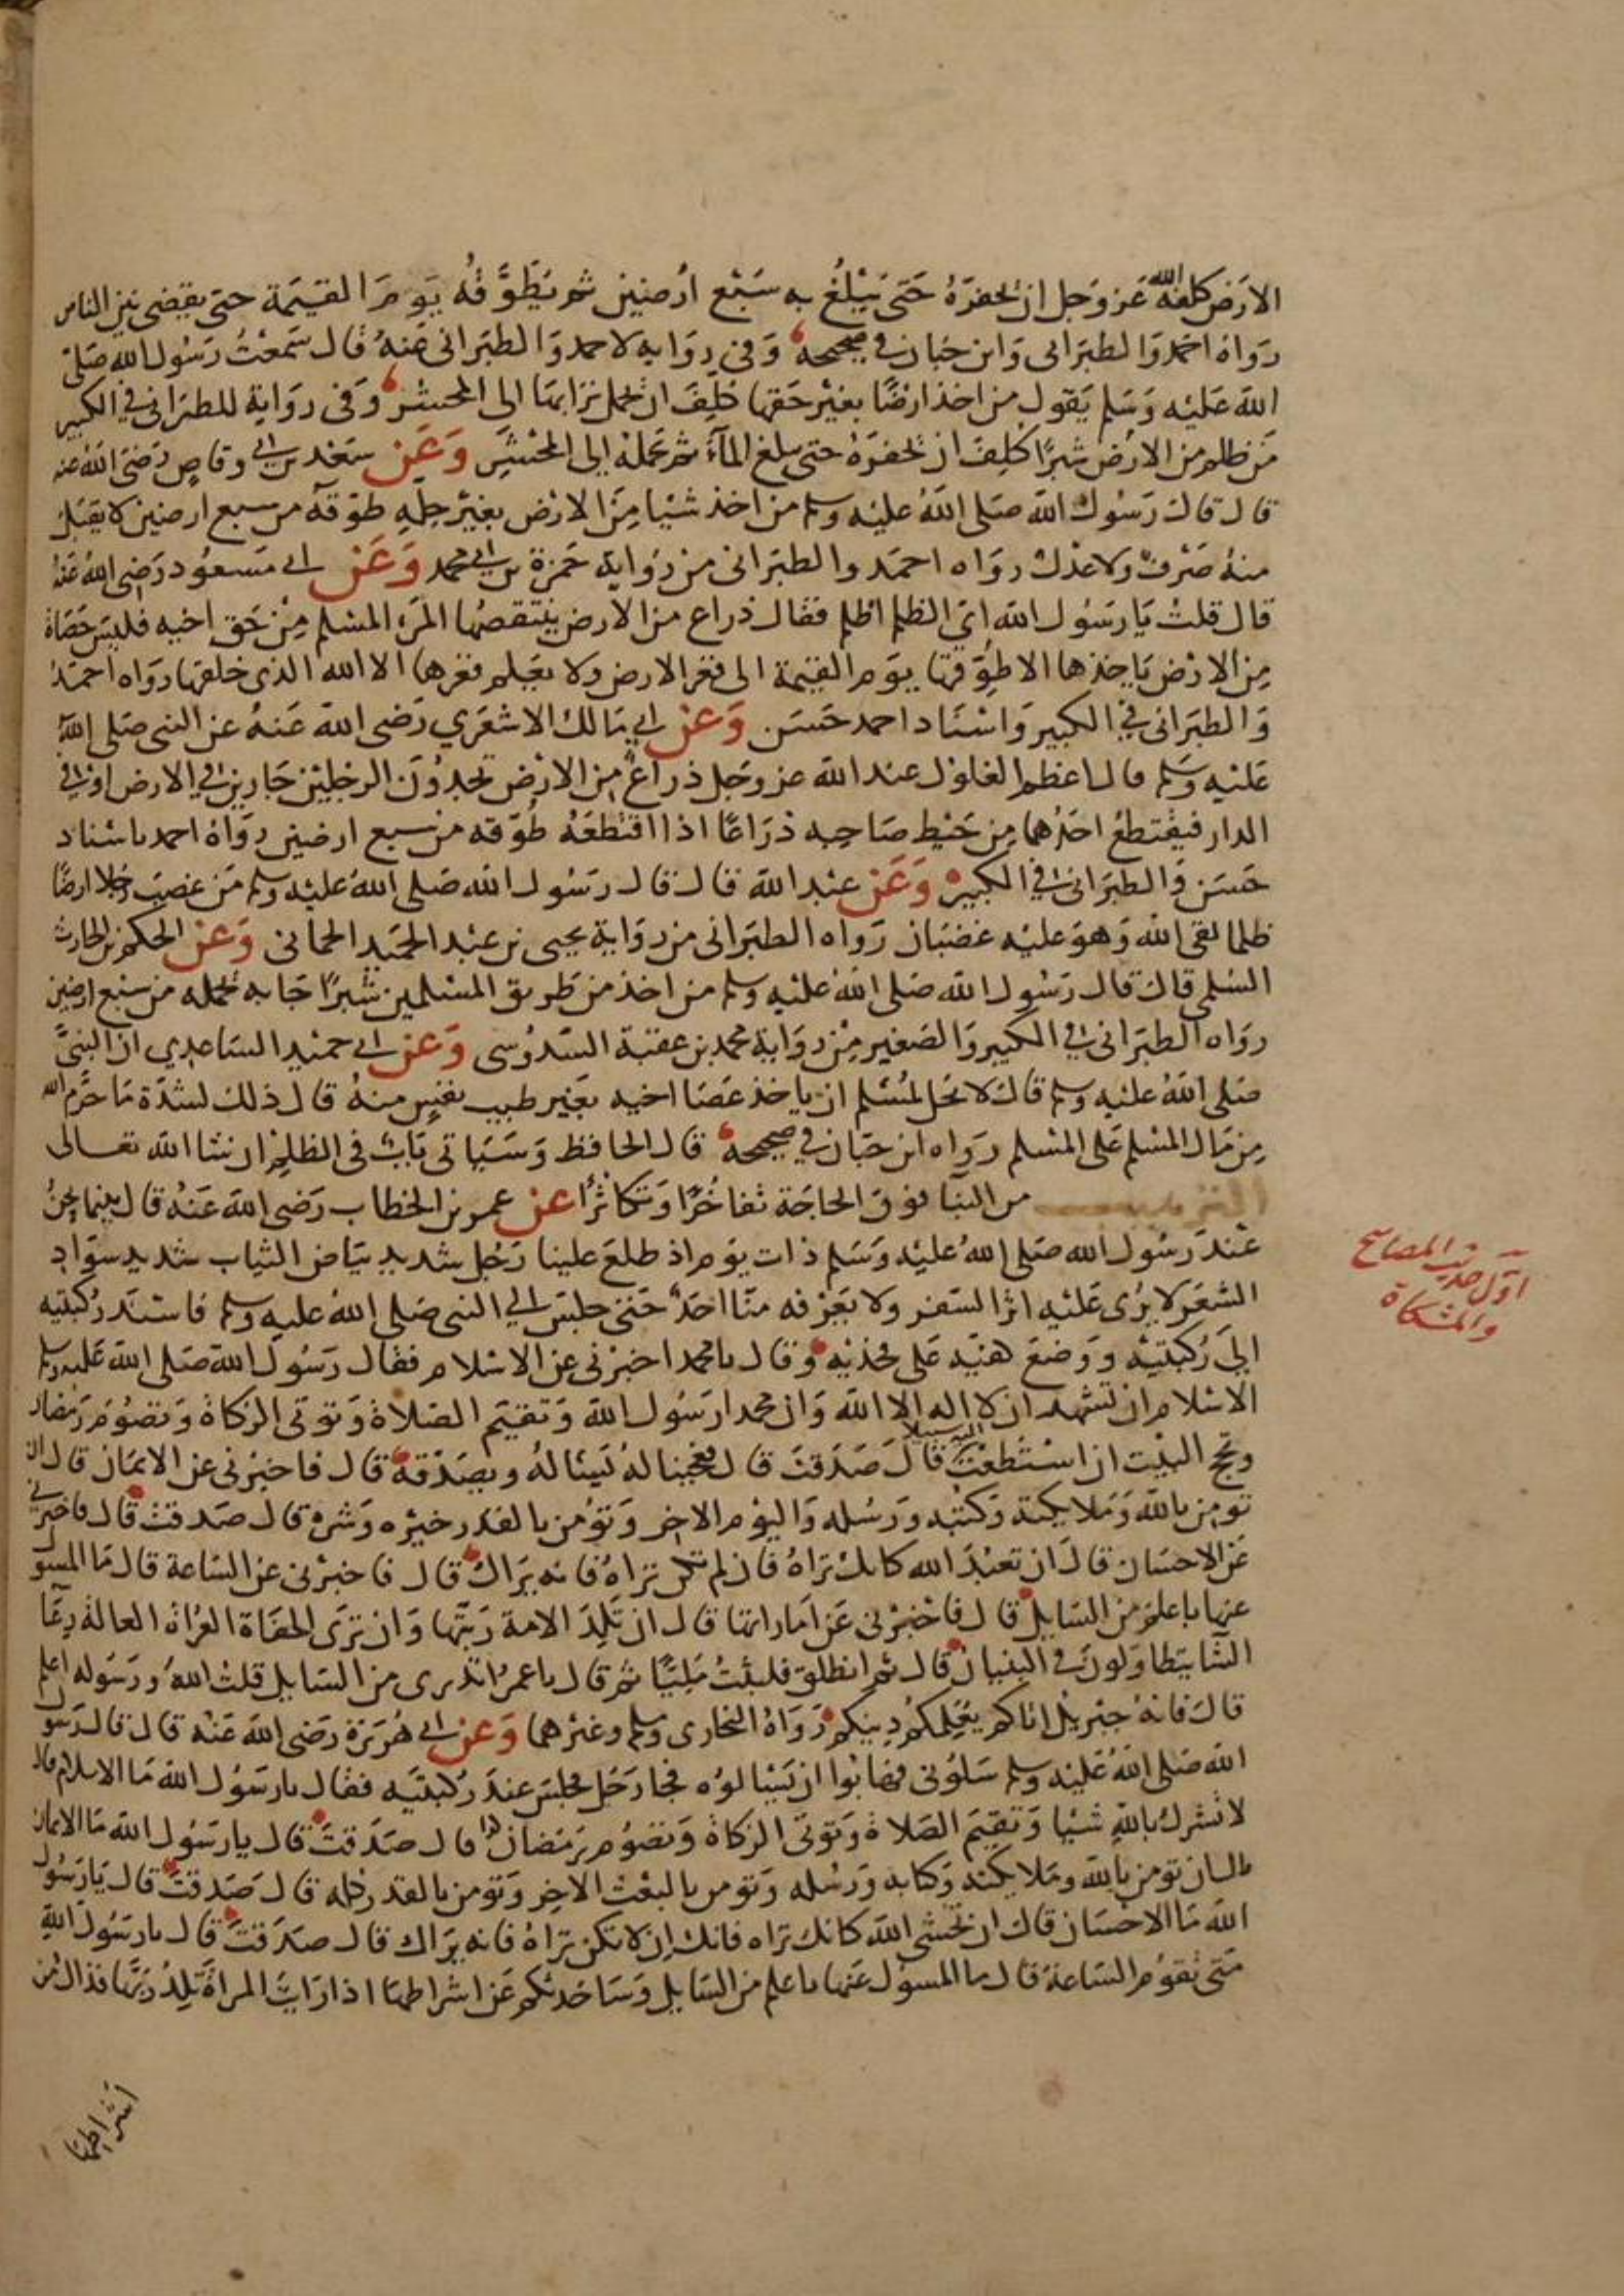 الارض كلفه الله عز وجل ان يحفره حتى يبلغ به سبع ارضين ثم يطوقه يوم القيمة حتى يقضى بين الناس
رواه احمد والطبرانى وابن حبان في صحيحه وفي رواية لاحمد والطبرانى عنه قال سمعت رسول الله صلى
الله عليه وسلم يقول من اخذ ارضا بغير حقها كلف ان يحمل ترابها الى المحشر وفى رواية للطبرانى في الكبير
من ظلم من الارض شبرا كلف ان يحفره حتى يبلغ الماء ثم يحمله الى المحشر وعن سعد بن ابي وقاص رضى الله عنه
قال قال رسول الله صلى الله عليه وسلم من اخذ شيا من الارض بغير حله طوقه من سبع ارضين لا يقبل
منه صرف ولا عدل رواه احمد والطبرانى من رواية حمزة بن ابي محمد وعن ابي مسعود رضى الله عنه
قال قلت يا رسول الله اي الظلم اظلم فقال ذراع من الارض ينتقصها المرء المسلم من حق اخيه فليس حصاة
من الارض ياخذها الا طوقها يوم القيمة الى قعر الارض ولا يعلم قعرها الا الله الذى خلقها رواه احمد
والطبرانى في الكبير واسناد احمد حسن وعن ابي مالك الاشعري رضى الله عنه عن النبى صلى الله
عليه وسلم قال اعظم الغلول عند الله عز وجل ذراع من الارض تجدون الرجلين جارين في الارض او في
الدار فيقتطع احدهما من حيط صاحبه ذراعا اذا اقتطعه طوقه من سبع ارضين رواه احمد باسناد
حسن والطبرانى في الكبير وعن عبد الله قال قال رسول الله صلى الله عليه وسلم من غصب رجلا ارضا
ظلما لقى الله وهو عليه غضبان رواه الطبرانى من رواية يحيى بن عبد الحميد الحمانى وعن الحكم بن الحارث
السلمى قال قال رسول الله صلى الله عليه وسلم من اخذ من طريق المسلمين شبرا جا به يحمله من سبع ارضين
رواه الطبرانى في الكبير والصغير من رواية محمد بن عقبة السدوسى وعن ابي حميد الساعدي ان النبى
صلى الله عليه وسلم قال لا يحل لمسلم ان ياخذ عصا اخيه بغير طيب نفس منه قال ذلك لشدة ما حرم الله
من مال المسلم على المسلم رواه ابن حبان في صحيحه قال الحافظ وسياتى باب فى الظلم ان شا الله تعالى
الترهيب من البنا فوق الحاجة تفاخرا وتكاثرا عن عمر بن الخطاب رضى الله عنه قال بينما نحن
عند رسول الله صلى الله عليه وسلم ذات يوم اذ طلع علينا رجل شديد بياض الثياب شديد سواد
الشعر لا يرى عليه اثر السفر ولا يعرفه منا احد حتى جلس الى النبى صلى الله عليه وسلم فاسند ركبتيه
الى ركبتيه ووضع كفيه على فخذيه وقال يا محمد اخبرنى عن الاسلام فقال رسول الله صلى الله عليه وسلم
الاسلام ان تشهد ان لا اله الا الله وان محمدا رسول الله وتقيم الصلاة وتوتى الزكاة وتصوم رمضان
وتحج البيت ان استطعت اليه سبيلا قال صدقت قال فعجبنا له يساله ويصدقه قال فاخبرنى عن الايمان قال ان
تومن بالله وملايكته وكتبه ورسله واليوم الاخر وتومن بالقدر خيره وشره قال صدقت قال فاخبرني
عن الاحسان قال ان تعبد الله كانك تراه فان لم تكن تراه فانه يراك قال فاخبرنى عن الساعة قال ما المسول
عنها باعلم من السايل قال فاخبرنى عن اماراتها قال ان تلد الامة ربتها وان ترى الحفاة العراة العالة رعا
الشا يتطاولون في البنيان قال ثم انطلق فلبثت مليا ثم قال يا عمر اتدرى من السايل قلت الله ورسوله اعلم
قال فانه جبريل اتاكم يعلمكم دينكم رواه البخارى ومسلم وغيرهما وعن ابي هريرة رضى الله عنه قال قال رسول
الله صلى الله عليه وسلم سلونى فهابوا ان يسالوه فجا رجل فجلس عند ركبتيه فقال يا رسول الله ما الاسلام قال
لا تشرك بالله شيا وتقيم الصلاة وتوتى الزكاة وتصوم رمضان قال صدقت قال يا رسول الله ما الايمان
قال ان تومن بالله وملايكته وكتابه ورسله وتومن بالبعث الاخر وتومن بالقدر كله قال صدقت قال يا رسول
الله ما الاحسان قال ان تخشى الله كانك تراه فانك ان لا تكن تراه فانه يراك قال صدقت قال يا رسول الله
متى تقوم الساعة قال ما المسول عنها باعلم من السايل وساحدثكم عن اشراطها اذا رايت المراة تلد ربها فذاك من
اشراطها
اول حديث المصابيح
والمشكاة